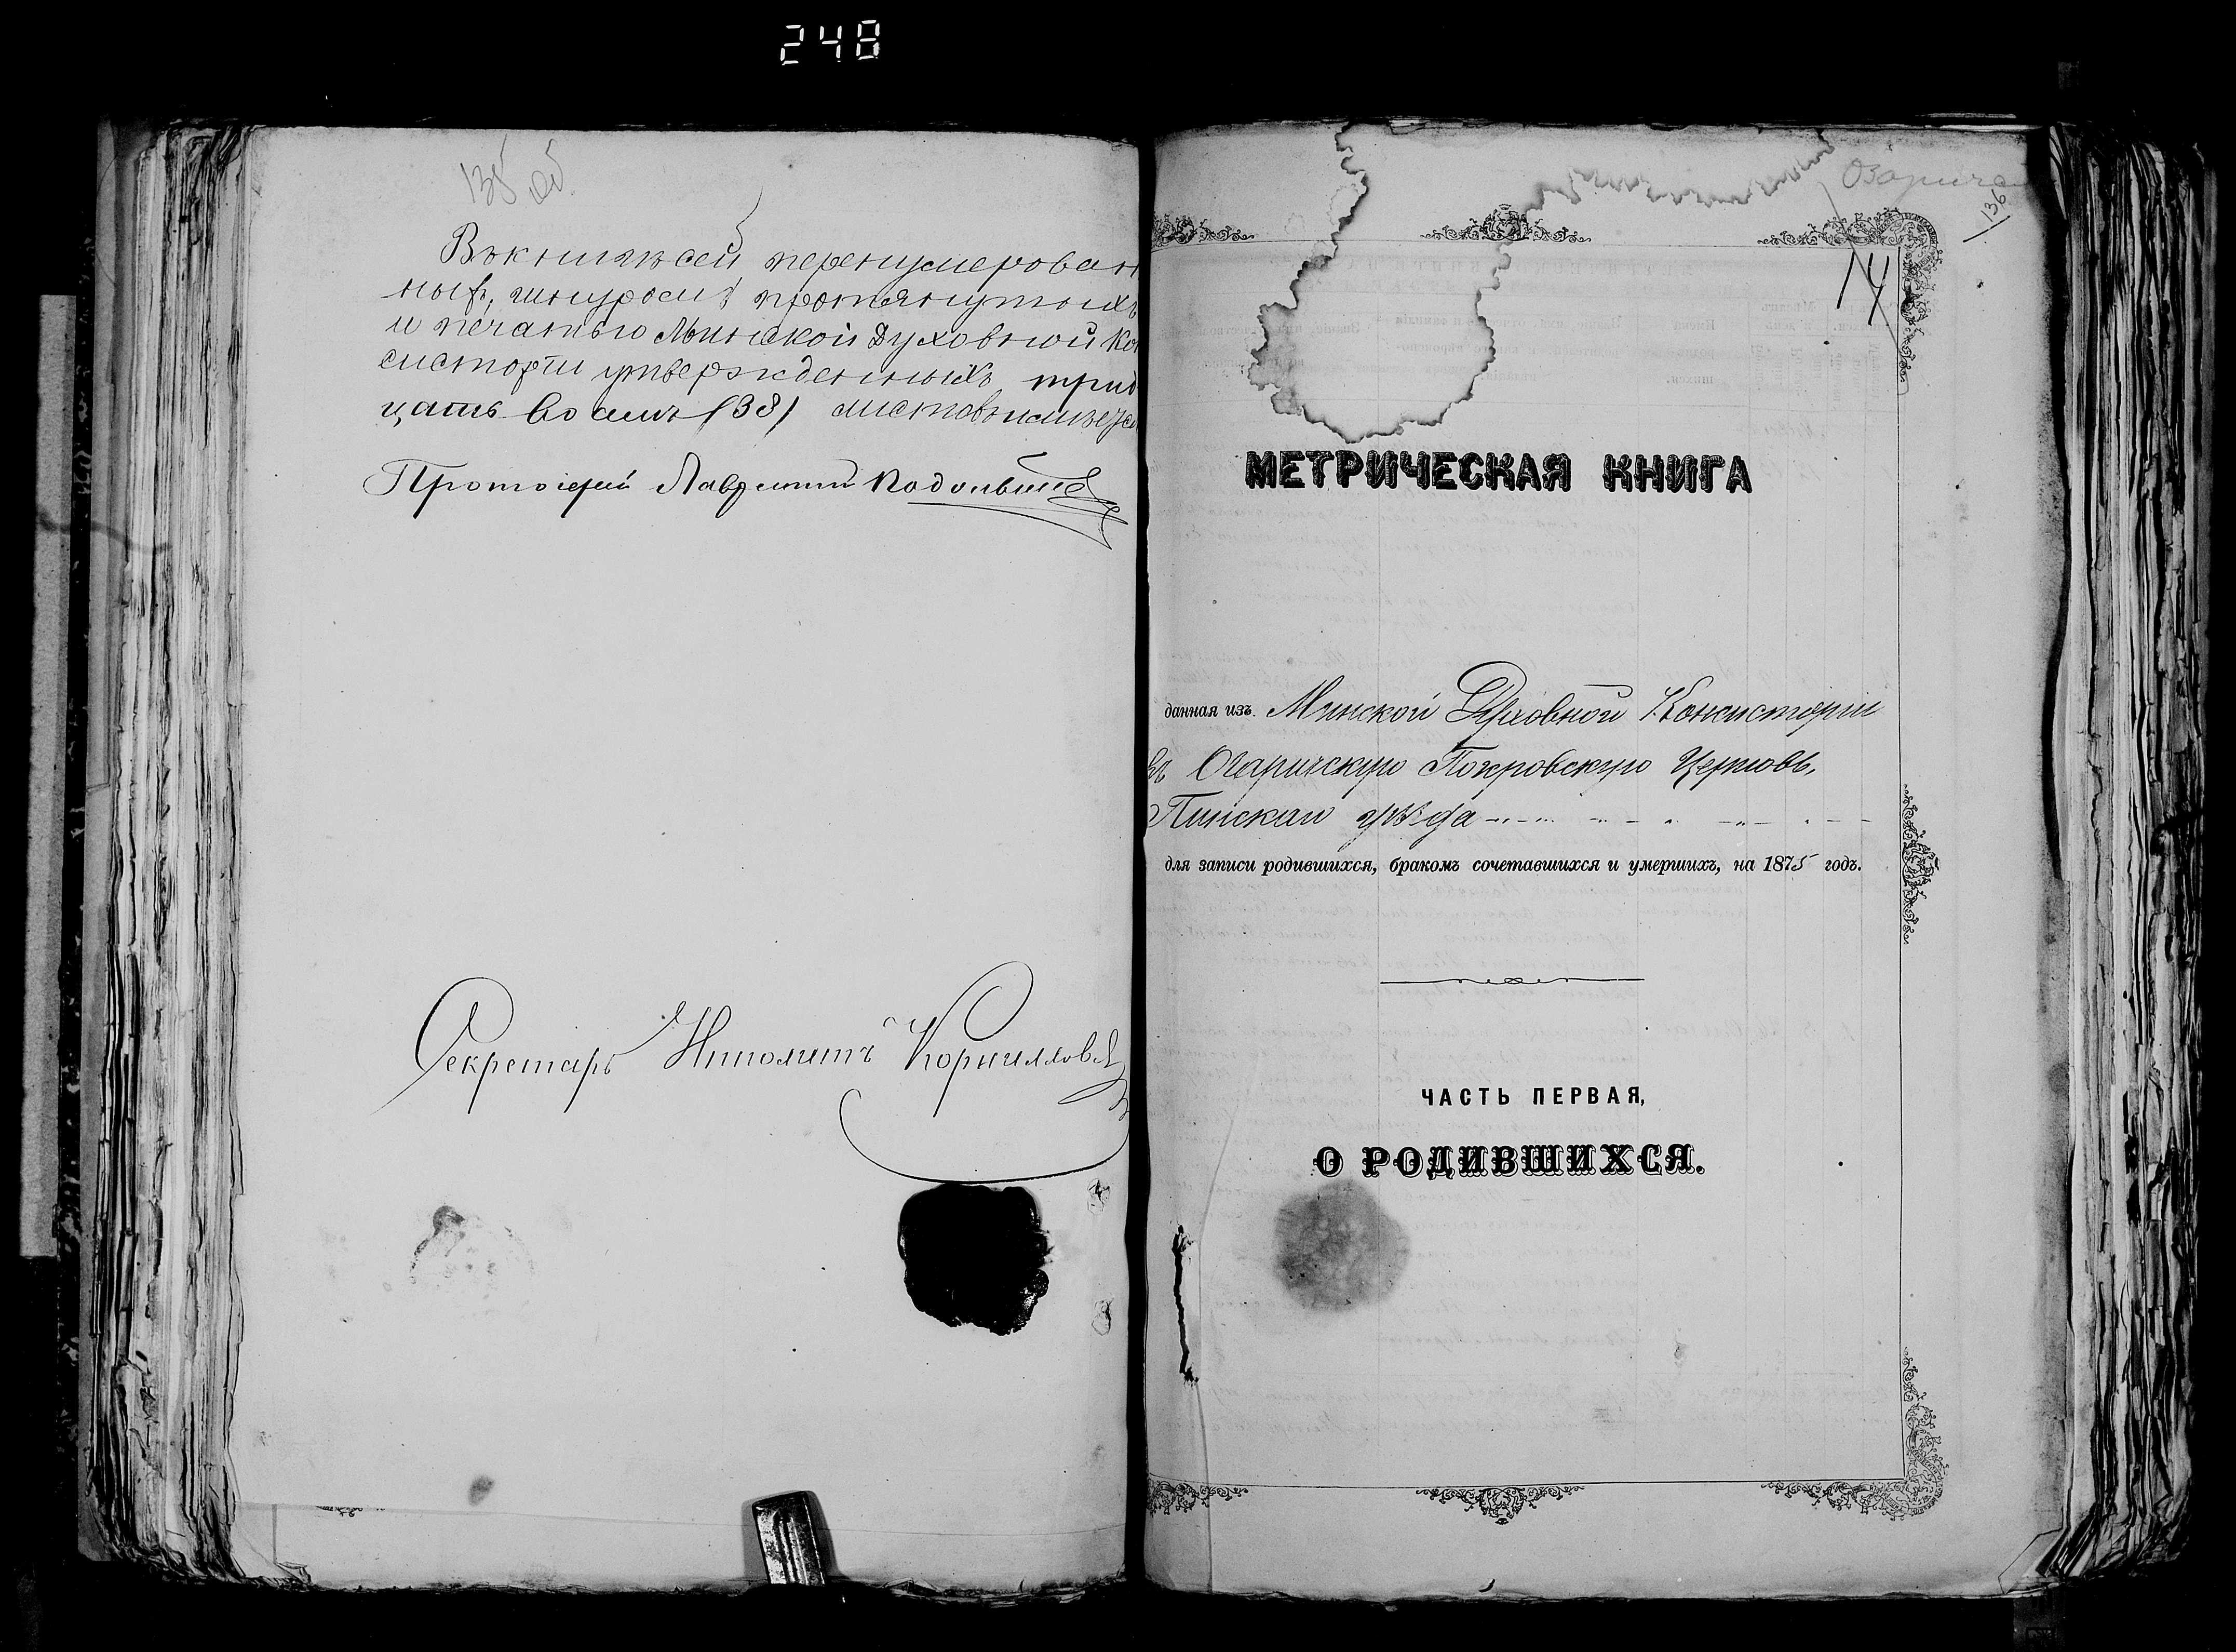 248
135 об.
Въ книгѣ сей перенумерован
ныхъ, шнуромъ протянутыхъ
и печатью Минской Духовной Кон
систоріи утвержденныхъ трид
цать восемь (38) листовъ
Протоіерей Лаврентій
Секретарь Ипполитъ Корнилловъ
Озаричс
136
14
МЕТРИЧЕСКАЯ КНИГА
данная изъ Минской Духовной Консисторіи
въ Озаричскую Покровскую Церковь,
Пинскаго уѣзда
для записи родившихся, бракомъ сочетавшихся и умершихъ, на 1875 годъ.
ЧАСТЬ ПЕРВАЯ,
О РОДИВШИХСЯ.